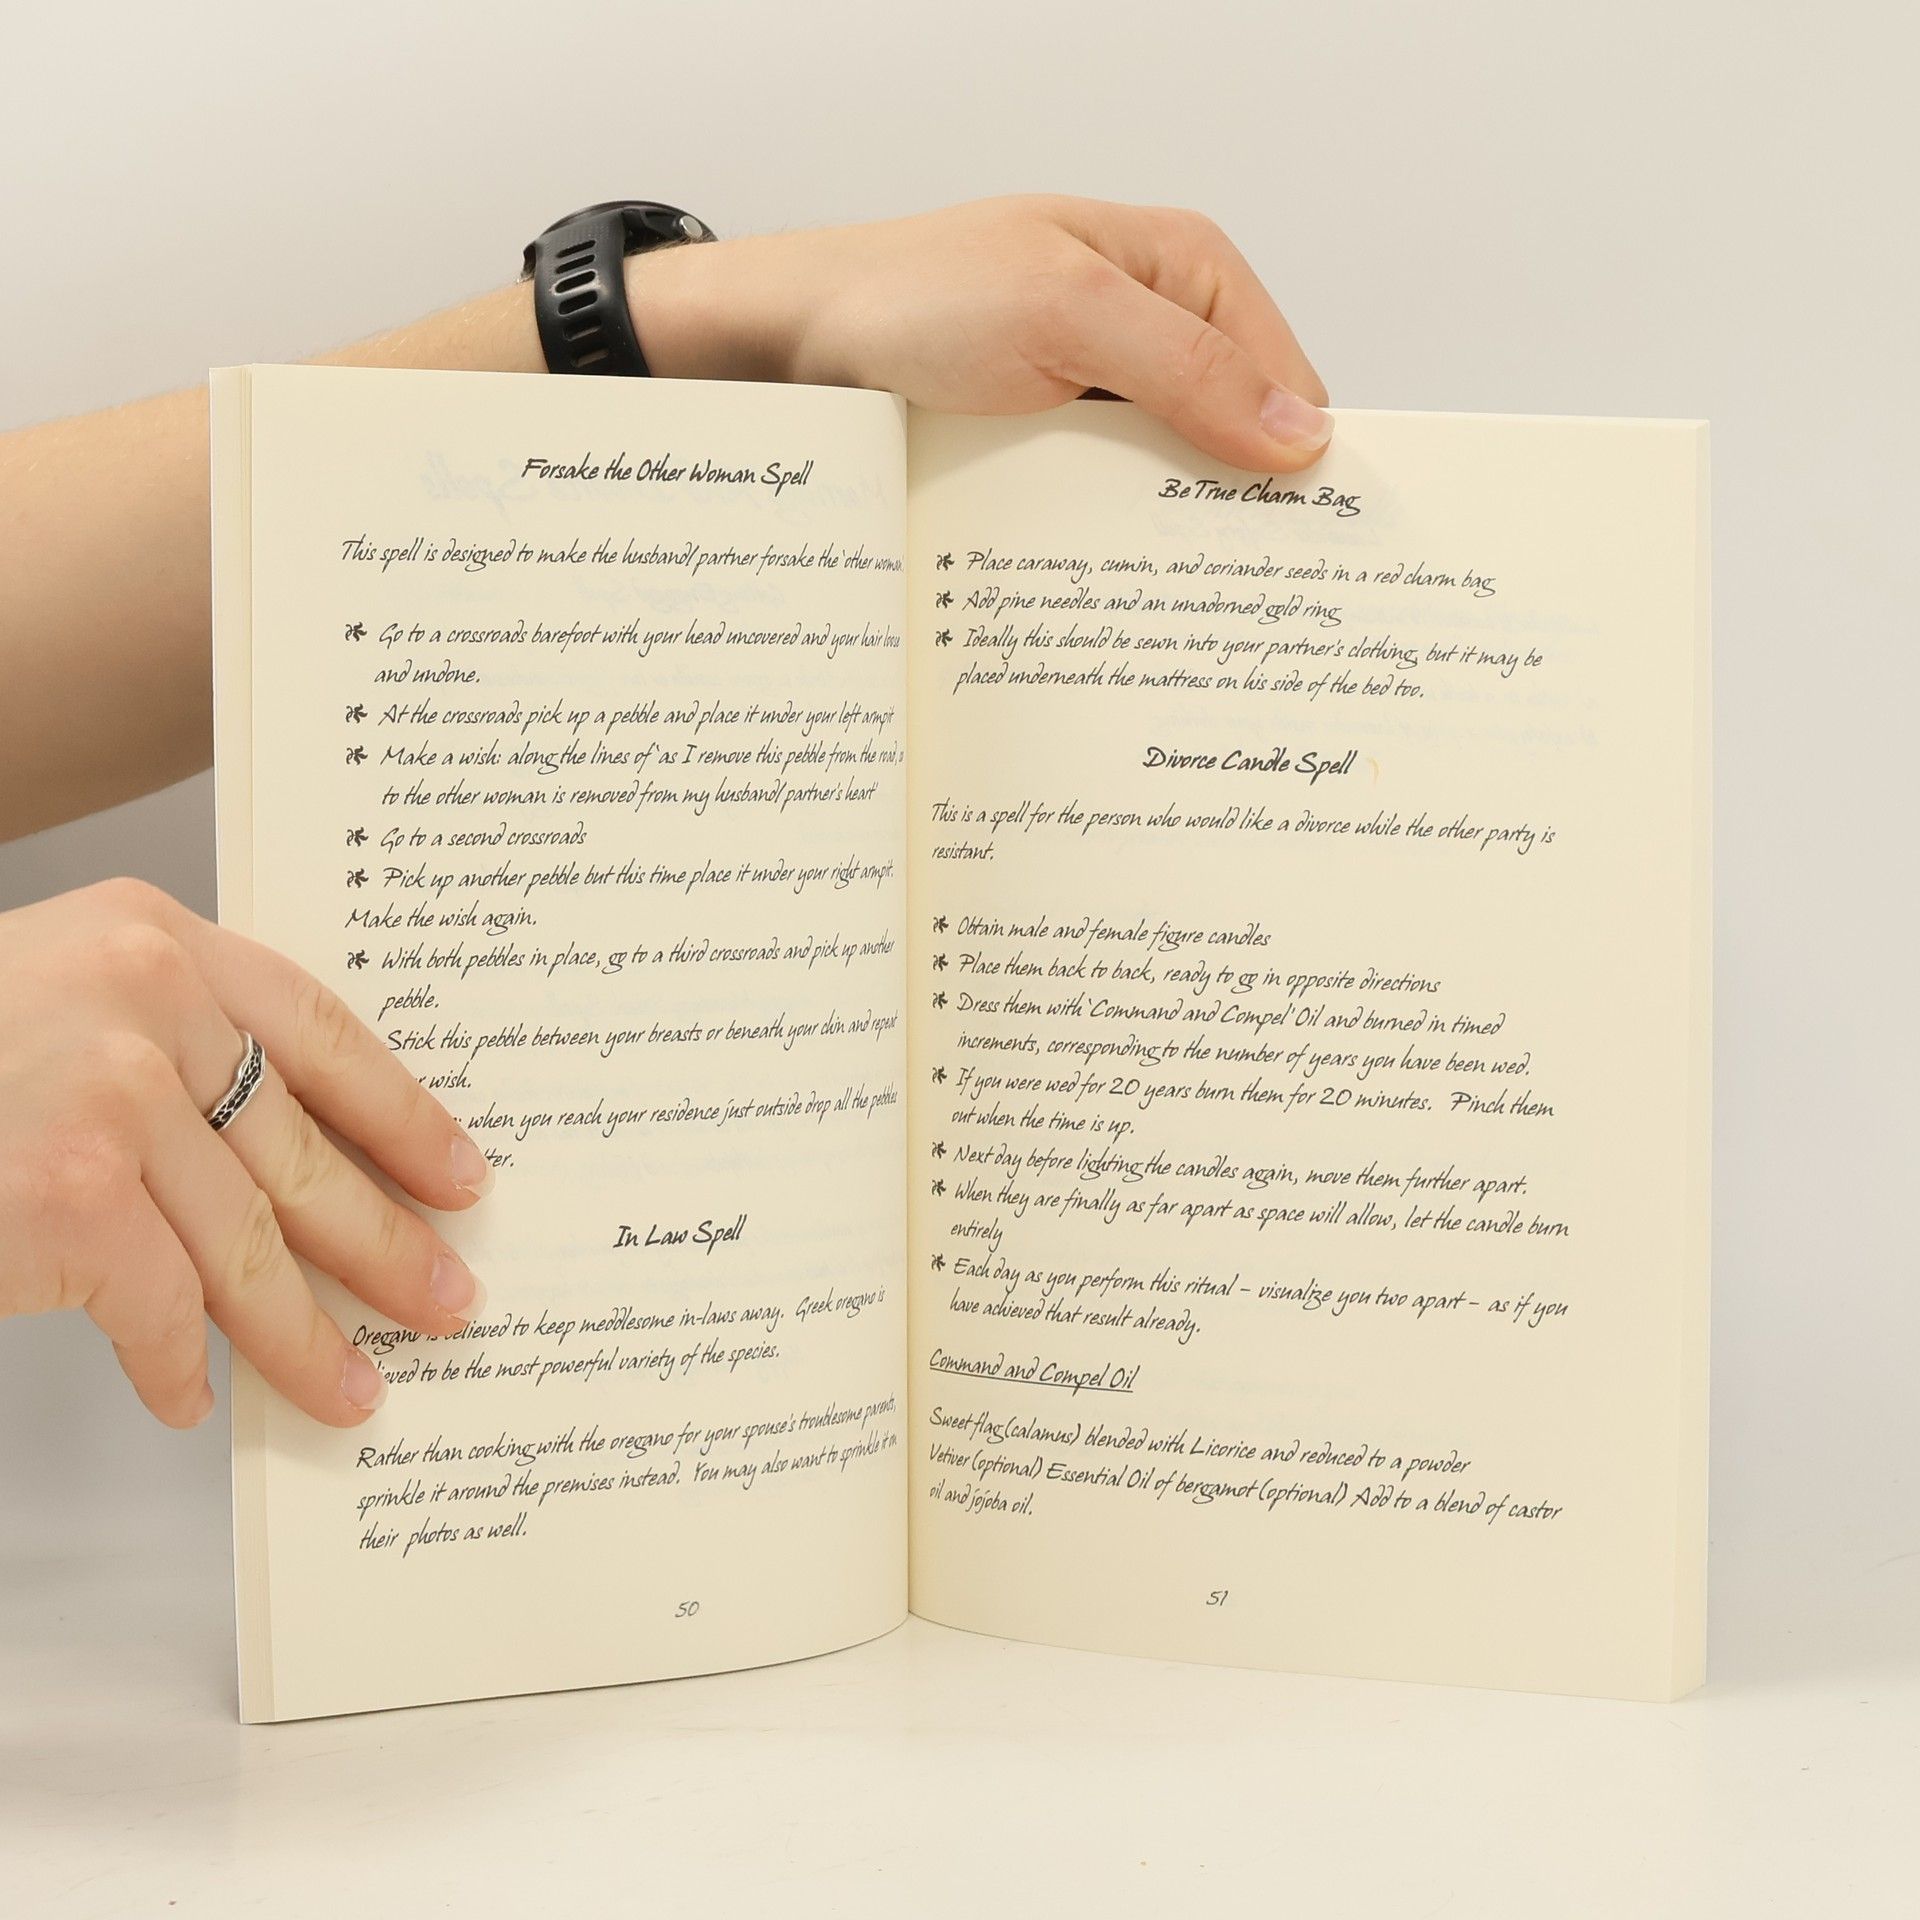 Forsake the Other Woman Spell
This spell is designed to make the husband/partner forsake the 'other woman'.
Go to a crossroads barefoot with your head uncovered and your hair loose
and undone.
At the crossroads pick up a pebble and place it under your left armpit
Make a wish: along the lines of 'as I remove this pebble from the road,
to the other woman is removed from my husband/partner's heart'
Go to a second crossroads
Pick up another pebble but this time place it under your right armpit.
Make the wish again.
With both pebbles in place, go to a third crossroads and pick up another
pebble.
Stick this pebble between your breasts or beneath your chin and repeat
wish.
when you reach your residence just outside drop all the pebbles
In Law Spell
Oregano is believed to keep meddlesome in-laws away. Greek oregano is
to be the most powerful variety of the species.
Rather than cooking with the oregano for your spouse's troublesome parents,
sprinkle it around the premises instead. You may also want to sprinkle it on
their photos as well.
50
Be True Charm Bag
Place caraway, cumin, and coriander seeds in a red charm bag
Add pine needles and an unadorned gold ring
Ideally this should be sewn into your partner's clothing, but it may be
placed underneath the mattress on his side of the bed too.
Divorce Candle Spell
This is a spell for the person who would like a divorce while the other party is
resistant.
Obtain male and female figure candles
Place them back to back, ready to go in opposite directions
Dress them with 'Command and Compel' Oil and burned in timed
increments, corresponding to the number of years you have been wed.
If you were wed for 20 years burn them for 20 minutes. Pinch them
out when the time is up.
Next day before lighting the candles again, move them further apart.
When they are finally as far apart as space will allow, let the candle burn
entirely
Each day as you perform this ritual – visualize you two apart – as if you
have achieved that result already.
Command and Compel Oil
Sweet flag (calamus) blended with Licorice and reduced to a powder
Vetiver (optional) Essential Oil of bergamot (optional) Add to a blend of castor
oil and jojoba oil.
51